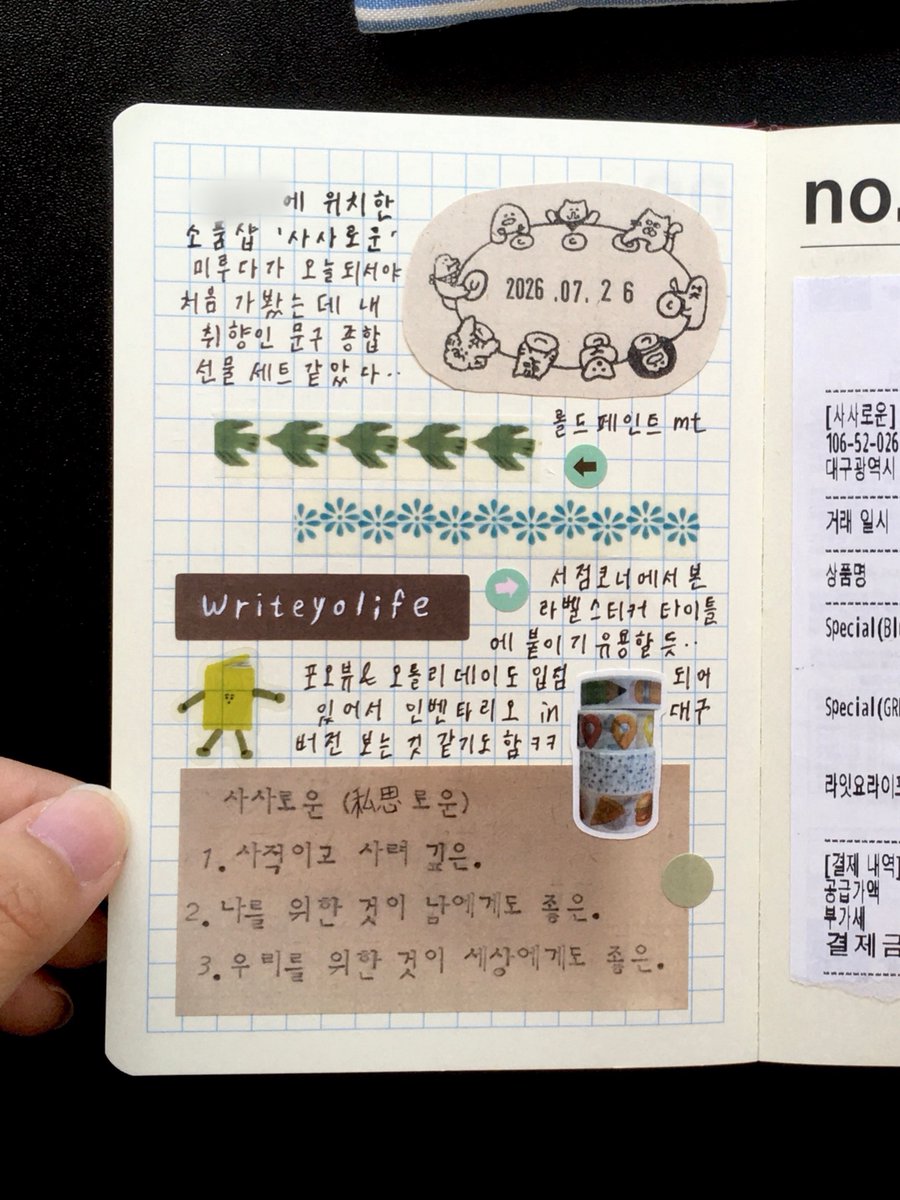 에 위치한
소품샵 '사사로운'
미루다가 오늘되서야
처음 가봤는데 내
취향인 문구 종합
선물세트 같았다..
2026.07.26
롤드페인트 mt
writeyolife
서점코너에서 본
라벨스티커 타이틀
에 붙이기 유용할듯..
포오뷰& 오롤리데이도 입점 되어
있어서 인벤타리오 in 대구
버전 보는것 같기도함ㅋㅋ
사사로운 (私思로운)
1. 사적이고 사려 깊은.
2. 나를 위한 것이 남에게도 좋은.
3. 우리를 위한 것이 세상에게도 좋은.
no.
[사사로운]
106-52-026
대구광역시
거래 일시
상품명
Special(Bl
Special(GR
라잇요라이프
[결제 내역]
공급가액
부가세
결제금